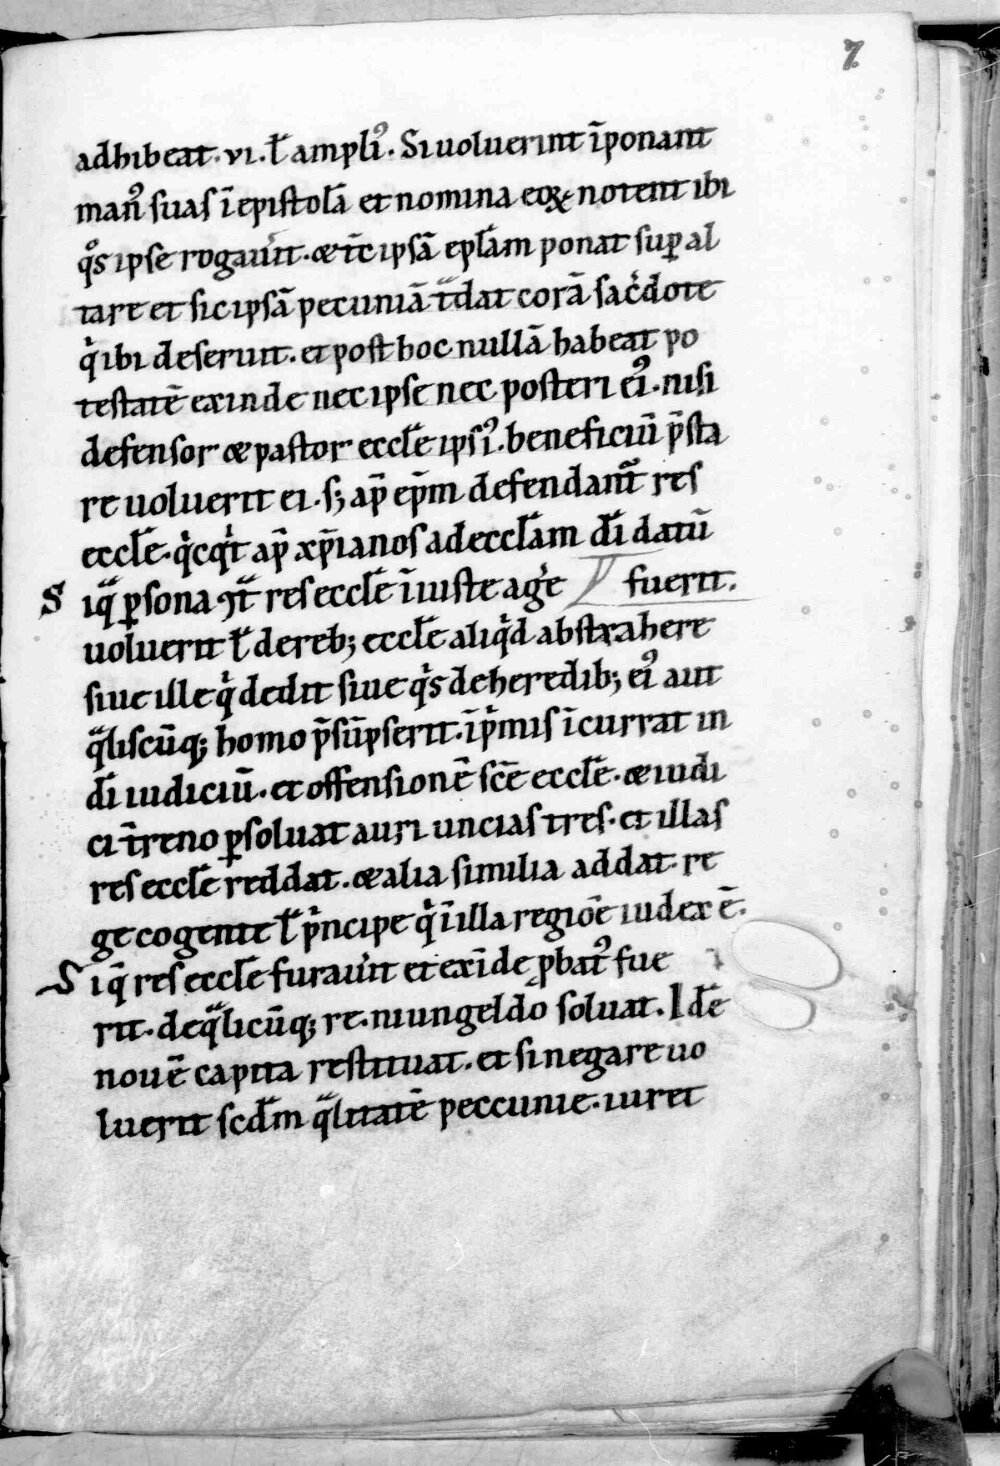 7
adhibeat. vi. ł ampli᾽. Si uoluerint īponant
man᾽ suas ī epistolā et nomina eoꝝ notent ibi
qͦs ipse rogau̾it. ⁊ tc̄ ipsā epłam ponat suꝑ al
tare et sic ipsā pecuniā t̄dat corā sac̾dote
qͥ ibi deseruit. et post hoc nullā habeat po
testatē exinde nec ipse nec posteri ei᾽. nisi
defensor ⁊ pastor eccłe ipsi᾽. beneficiū p̄sta
re uoluerit ei. s; ap̄ ep̄m defendant᷑ res
eccłe. qͥcqͥt ap̄ xp̄ianos ad eccłam dī datū
fuerit.
Siqͣ ꝑsona ↄͭ res eccłe īiuste ag̾e
uoluerit ł de reb; eccłe aliqͥd abstrahere
siue ille qͥ dedit siue qͥs de heredib; ei᾽ aut
qͣliscūq; homo p̄sūpserit. īpͥmis īcurrat in
dī iudiciū. et offensionē scē eccłe. ⁊ iudi
ci t̄reno ꝑsoluat auri uncias tres. et illas
res eccłe reddat. ⁊ alia similia addat. re
ge cogente ł pͥncipe qͥ ī illa regiōe iudex ē.
Siq̄ res eccłe furau̾it et exīde ꝓbat᾽ fue
rit. de qͣlicūq; re. niungeldo soluat. I dē
nouē capita restituat. et si negare uo
luerit scdm̄ qͣlitatē peccunie. iuret